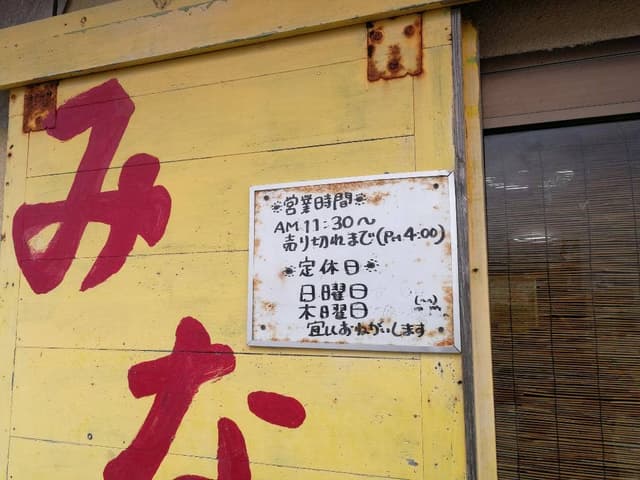 みな
☀営業時間☀
AM 11:30〜
売り切れまで(PM 4:00)
☀定休日☀
日曜日
木曜日
宜しくおねがいします